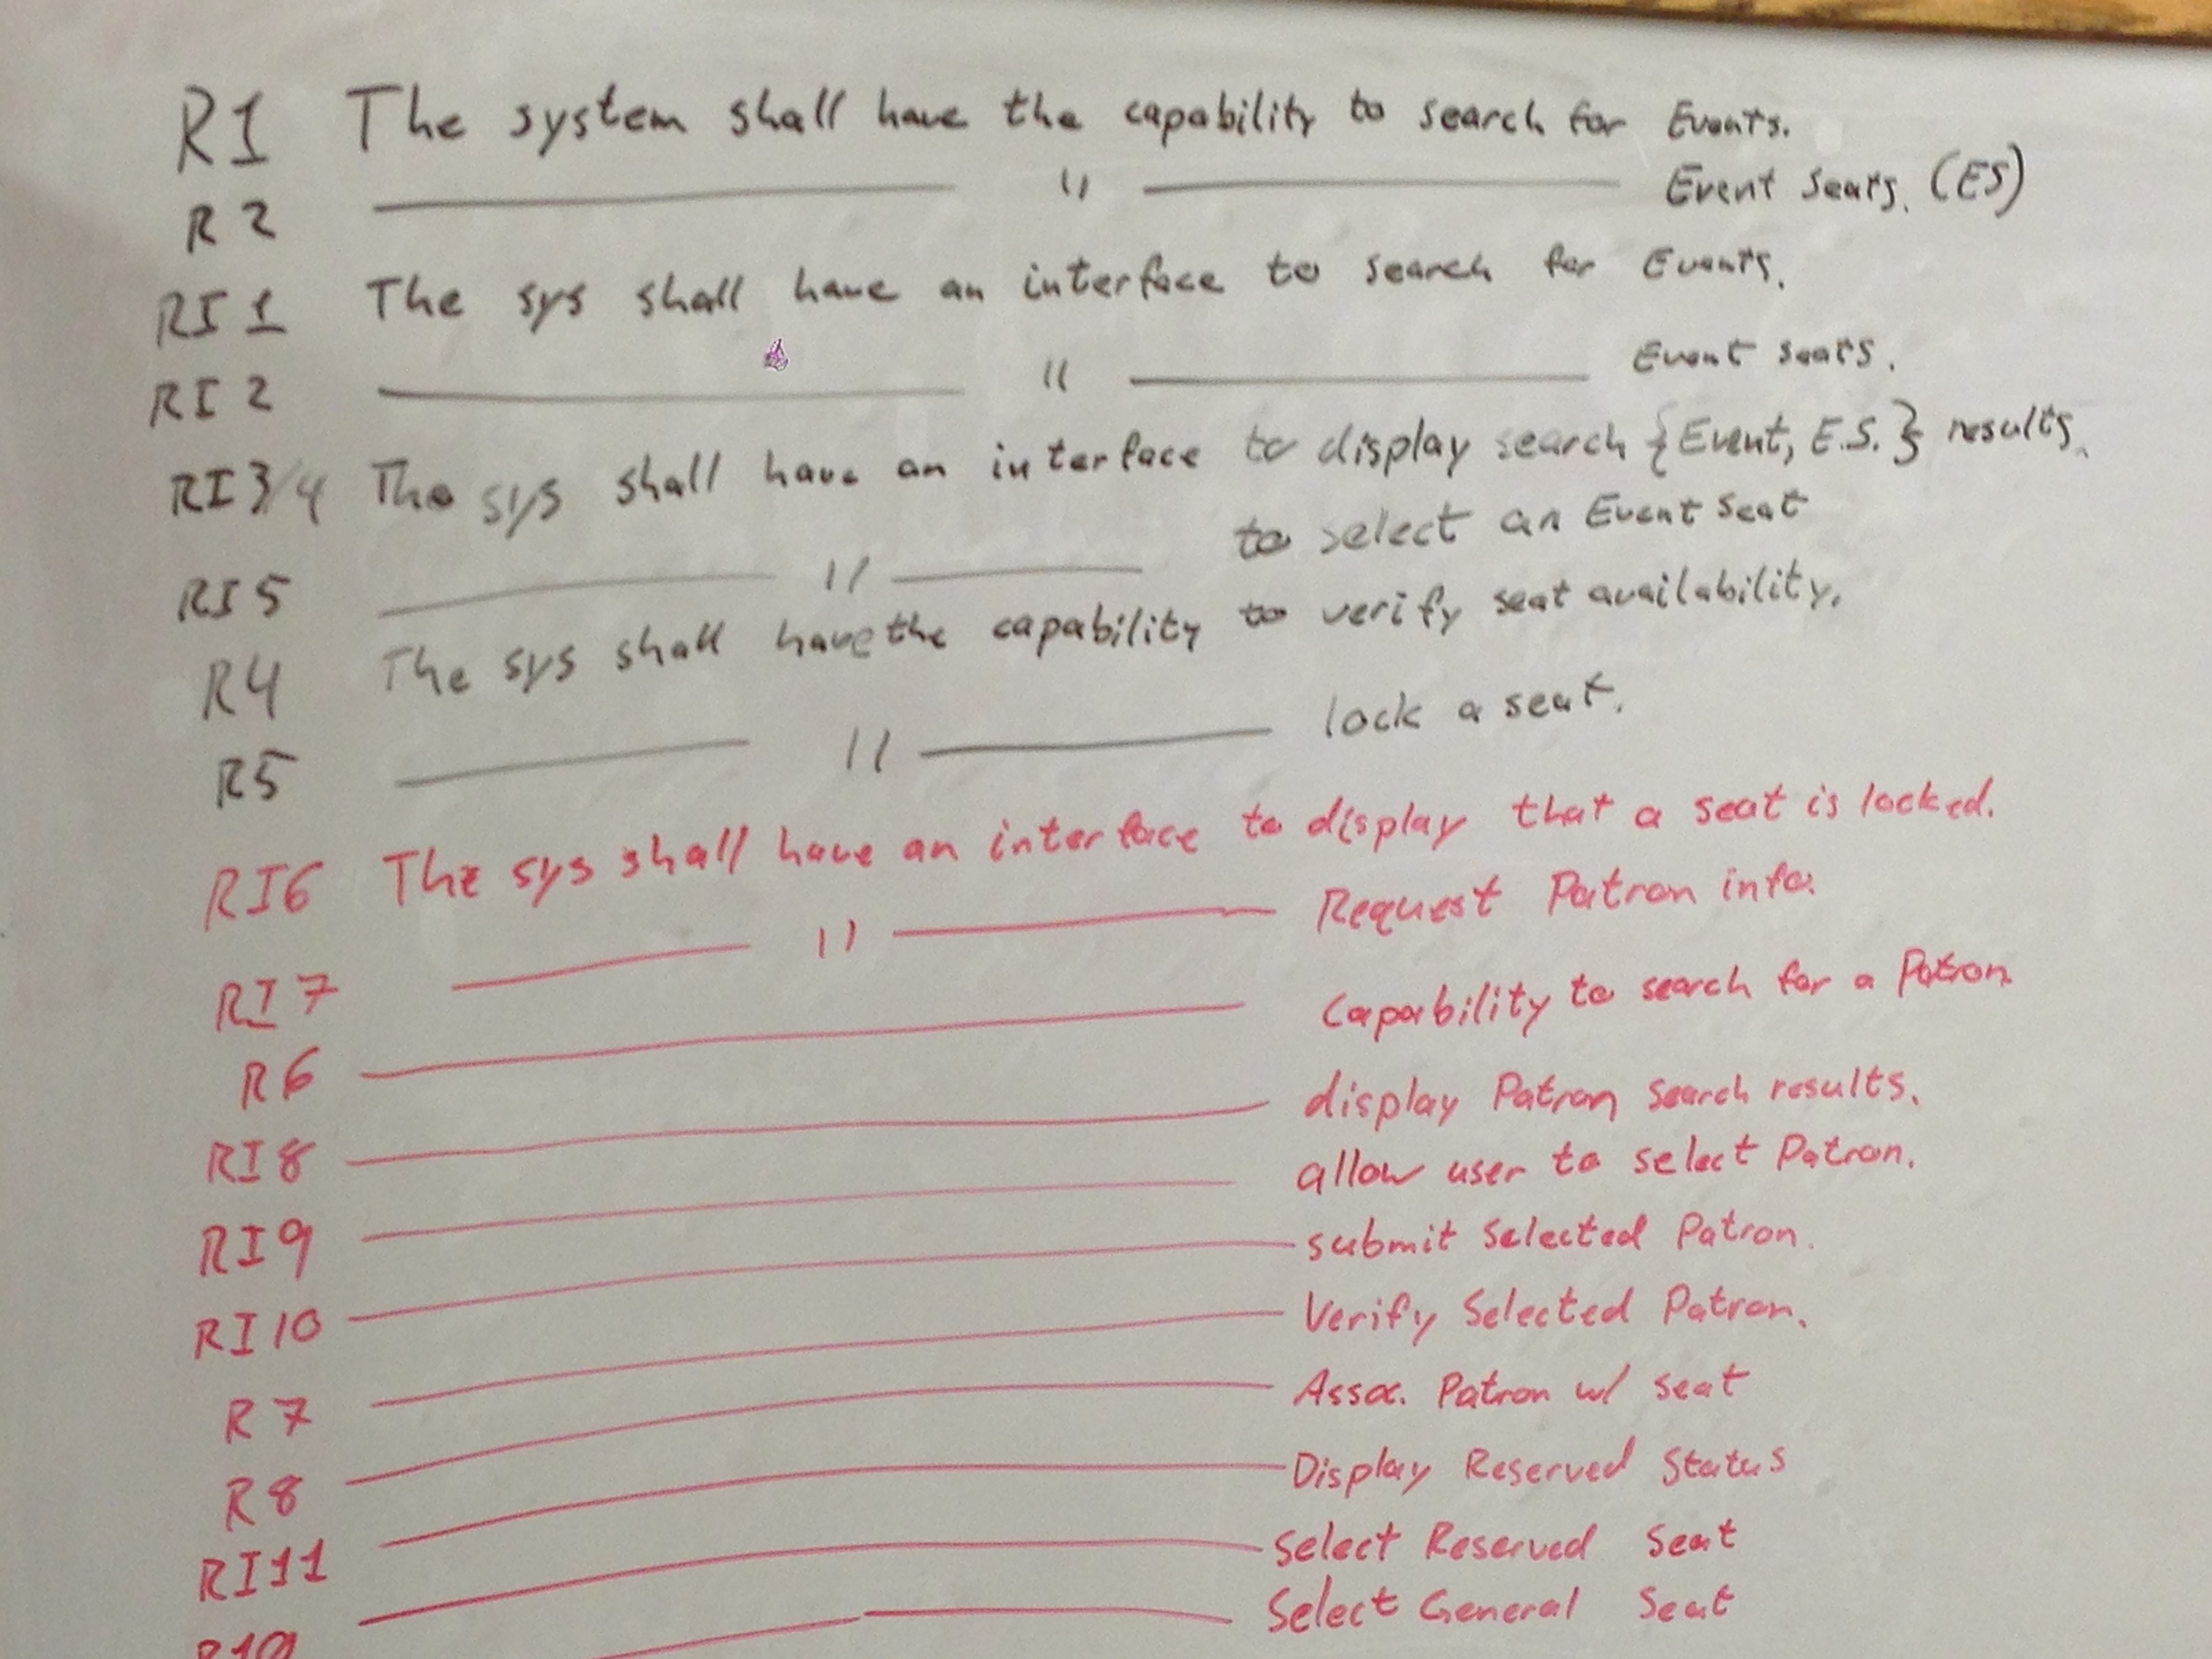 R1 The system shall have the capability to search for Events.
R2 —— " —— Event Seats. (ES)
RI1 The sys shall have an interface to search for Events.
RI2 —— " —— Event seats.
RI3/4 The sys shall have an interface to display search {Event, E.S.} results.
RI5 —— " —— to select an Event Seat
R4 The sys shall have the capability to verify seat availability.
R5 —— " —— lock a seat.
RI6 The sys shall have an interface to display that a seat is locked.
RI7 —— " —— Request Patron info.
R6 —— Capability to search for a Patron.
RI8 —— display Patron Search results.
RI9 —— allow user to select Patron.
RI10 —— submit Selected Patron.
R7 —— Verify Selected Patron.
R8 —— Assoc. Patron w/ seat
RI11 —— Display Reserved Status
—— Select Reserved Seat
—— Select General Seat